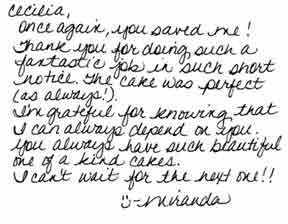 Cecilia,
Once again, you saved me!
Thank you for doing such a
fantastic job in such short
notice. The cake was perfect
(as always!).
I'm grateful for knowing that
I can always depend on you.
You always have such beautiful
one of a kind cakes.
I can't wait for the next one!!
:)-Miranda